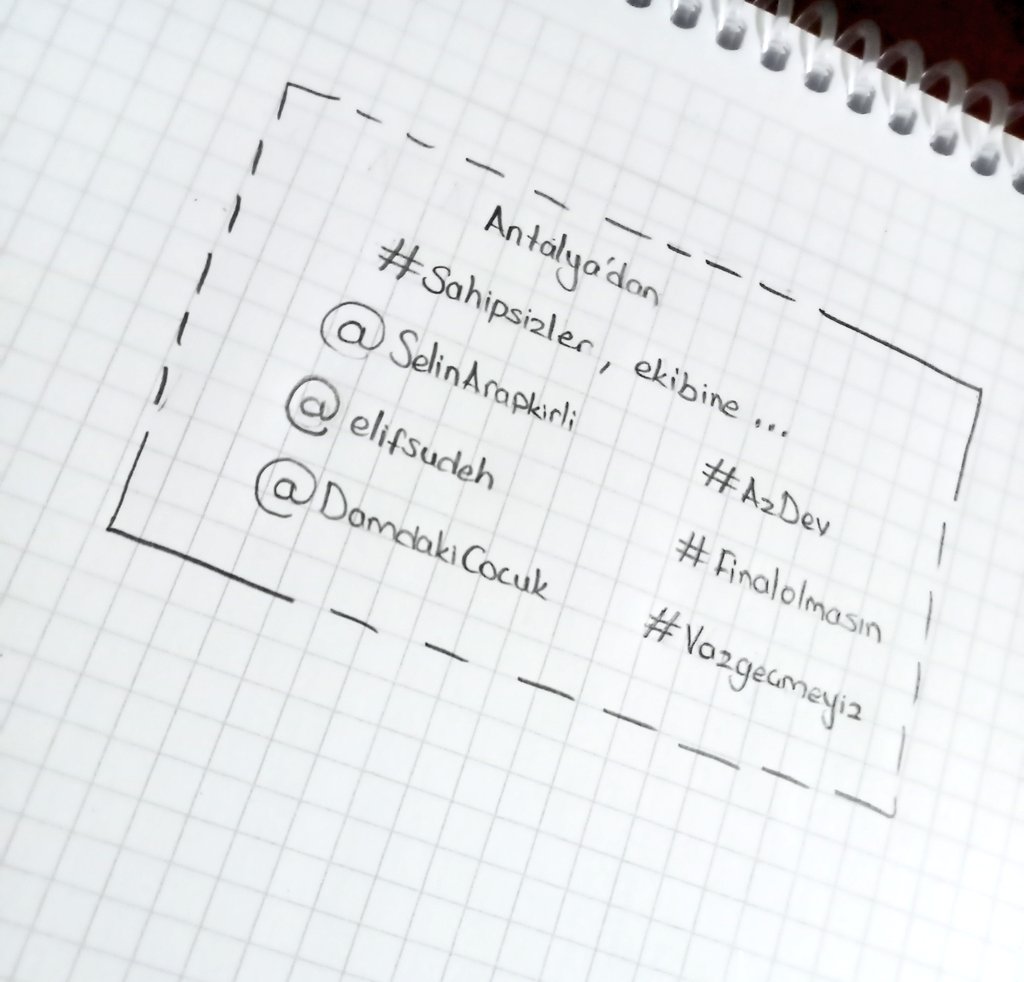 Antalya'dan
#Sahipsizler, ekibine...
@SelinArapkirli
@elifsudeh
@DamdakiCocuk
#AzDev
#Finalolmasın
#Vazgecmeyiz